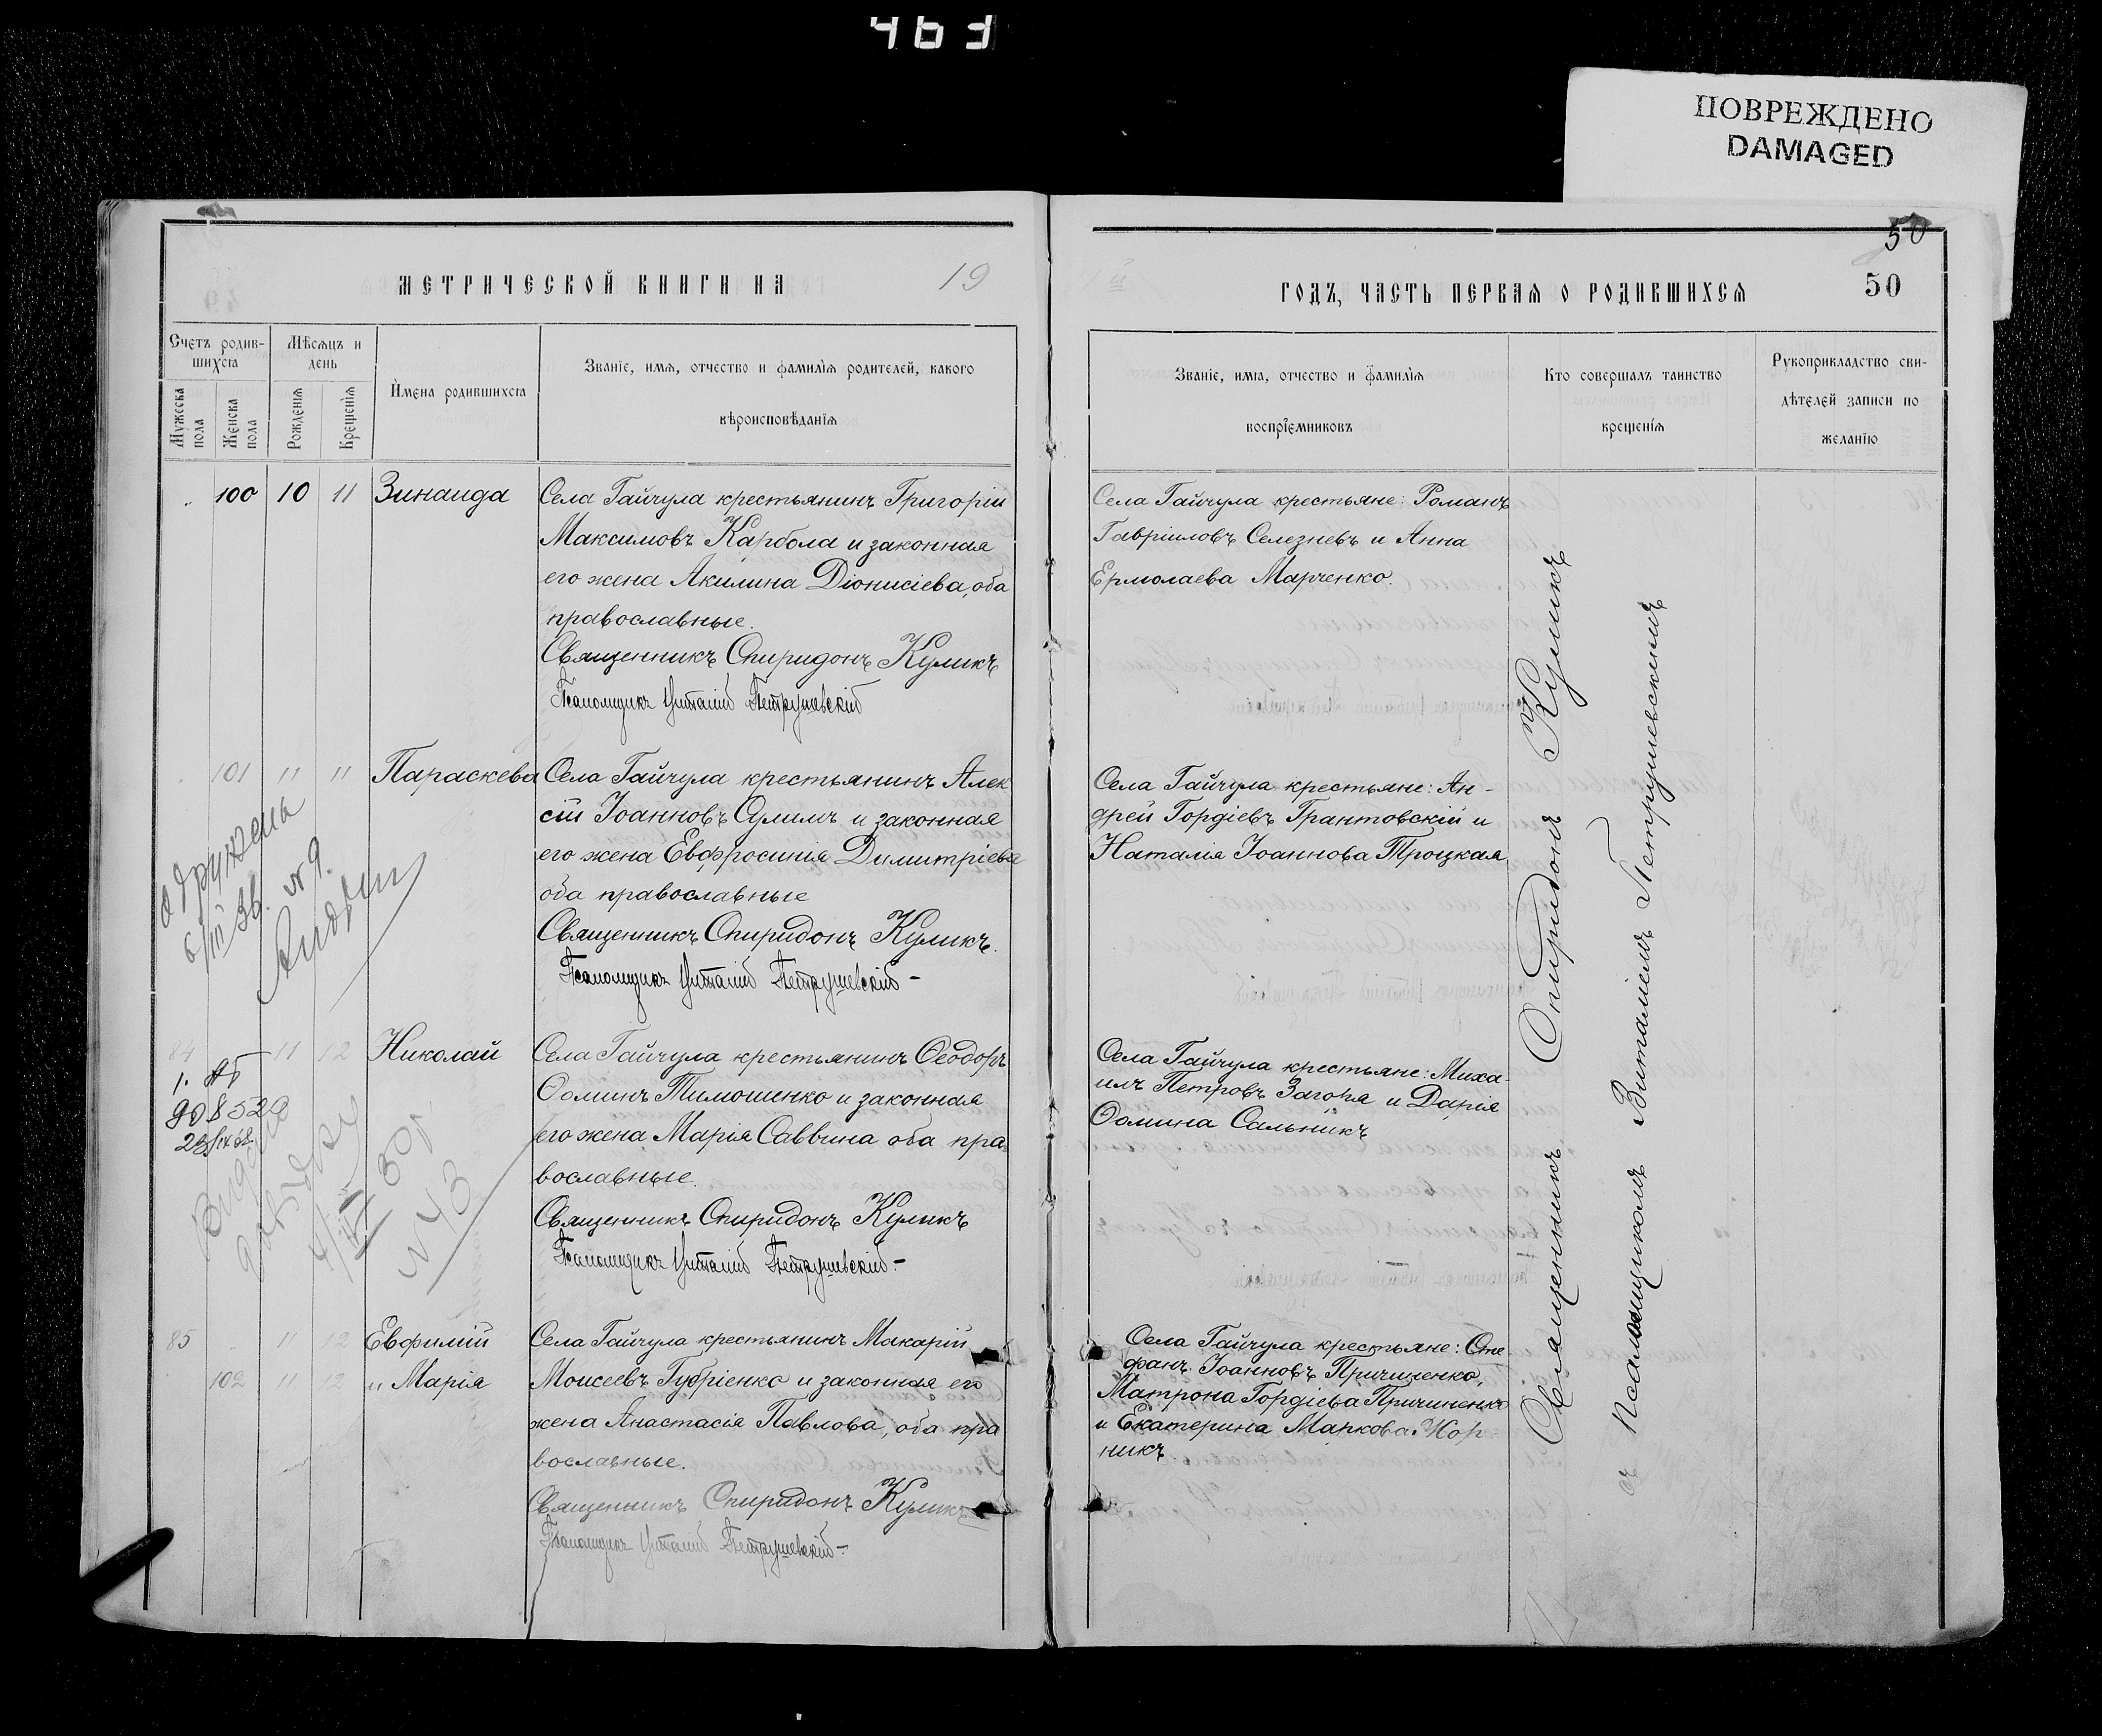 463
ПОВРЕЖДЕНО
DAMAGED
МЕТРИЧЕСКОЙ КНИГИ НА 19
Счетъ родив-
шихся
Мѣсяцъ и
день
Мужеска
пола
Женска
пола
Рожденія
Крещенія
Имена родившихся
Званіе, имя, отчество и фамилія родителей, какого
вѣроисповѣданія
100 10 11 Зинаида
Села Гайчула крестьянинъ Григорій
Максимовъ Карбола и законная
его жена Акилина Діонисіева, оба
православные.
Священникъ Спиридонъ Куликъ
Псаломщикъ Виталій Петрушевскій
101 11 11 Параскева
Села Гайчула крестьянинъ Алек
сій Іоанновъ Сулимъ и законная
его жена Евфросинія Димитріева
оба православные
Священникъ Спиридонъ Куликъ.
Псаломщикъ Виталій Петрушевскій -
одружена
6/III 36. N 9.
84 11 12 Николай
Села Гайчула крестьянинъ Ѳеодоръ
Ѳоминъ Тимошенко и законная
его жена Марія Саввина оба пра
вославные.
Священникъ Спиридонъ Куликъ
Псаломщикъ Виталій Петрушевскій -
908529
N 43
85 11 12 Евфимій
102 11 12 и Марія
Села Гайчула крестьянинъ Макарій
Моисеевъ Губріенко и законная его
жена Анастасія Павлова, оба пра
вославные.
Священникъ Спиридонъ Куликъ
Псаломщикъ Виталій Петрушевскій -
50
ГОДЪ, ЧАСТЬ ПЕРВАЯ О РОДИВШИХСЯ 50
Званіе, имя, отчество и фамилія
воспріемниковъ
Кто совершалъ таинство
крещенія
Рукоприкладство сви-
дѣтелей записи по
желанію
Села Гайчула крестьяне: Романъ
Гавріиловъ Селезневъ и Анна
Ермолаева Марченко.
Села Гайчула крестьяне: Ан-
дрей Гордіевъ Грантовскій и
Наталія Іоаннова Троцкая
Села Гайчула крестьяне: Миха-
илъ Петровъ Загоря и Дарія
Ѳомина Сальникъ
Села Гайчула крестьяне: Сте-
фанъ Іоанновъ Причиненко,
Матрона Гордіева Причиненко
и Екатерина Маркова Кор
никъ
Священникъ Спиридонъ Куликъ
съ Псаломщикомъ Виталіемъ Петрушевскимъ